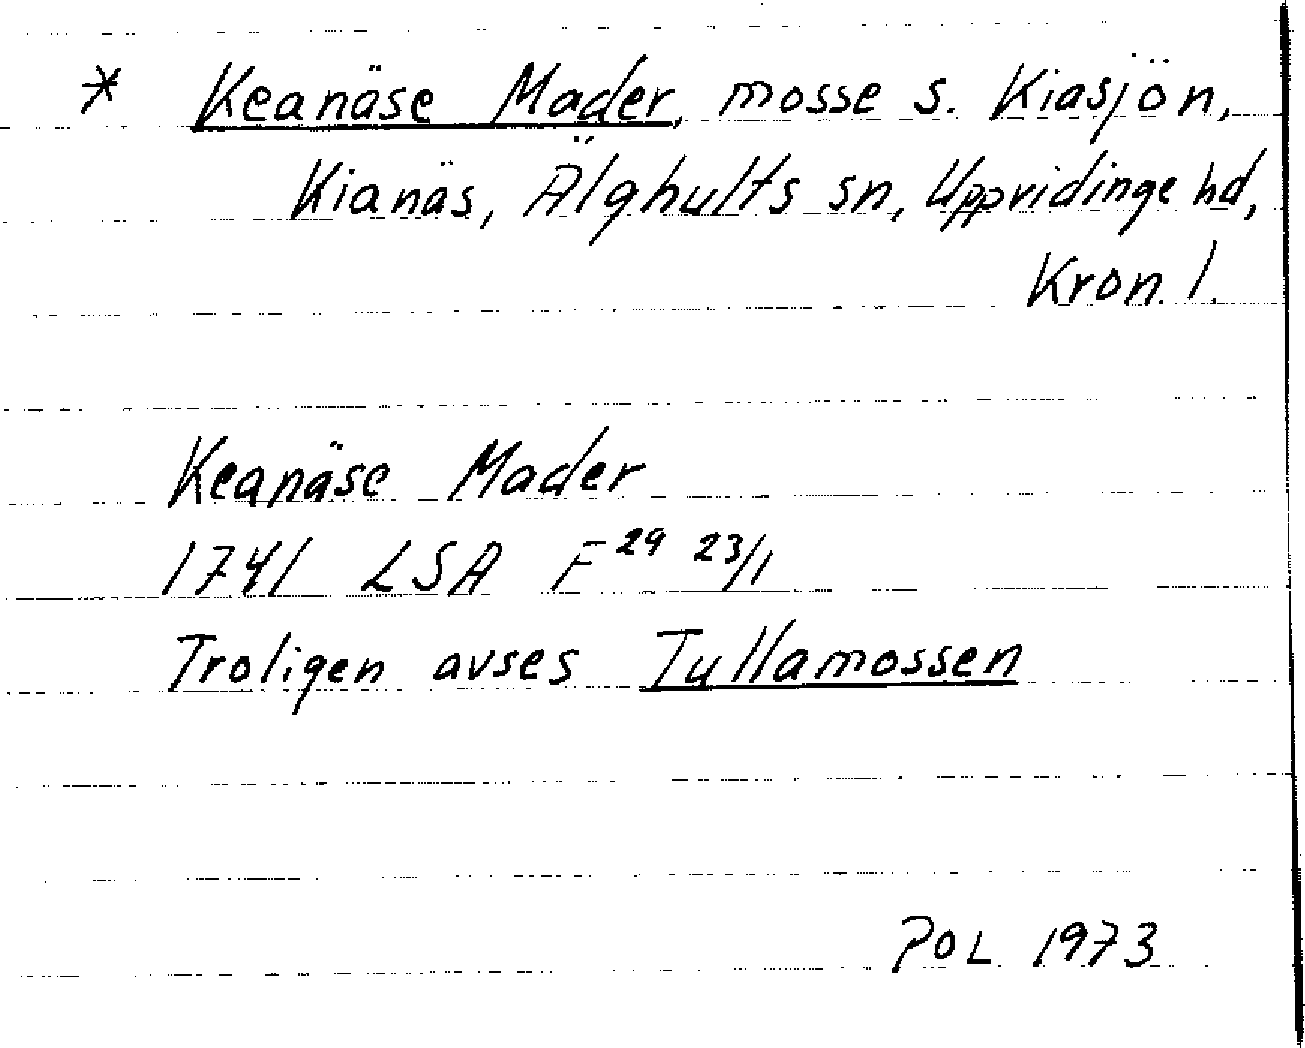 * Keanäse Mader, mosse s. Kiasjön,
Kianäs, Älghults sn, Uppvidinge hd,
Kron. l.
Keanäse Mader
1741 LSA F²⁹ 23/1
Troligen avses Tullamossen
POL 1973